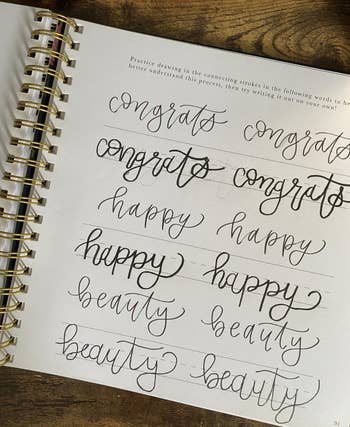 Practice drawing in the connecting strokes in the following words to be
better understand this process, then try writing it out on your own!
congrats congrats
congrats congrats
happy happy
happy happy
beauty beauty
beauty beauty